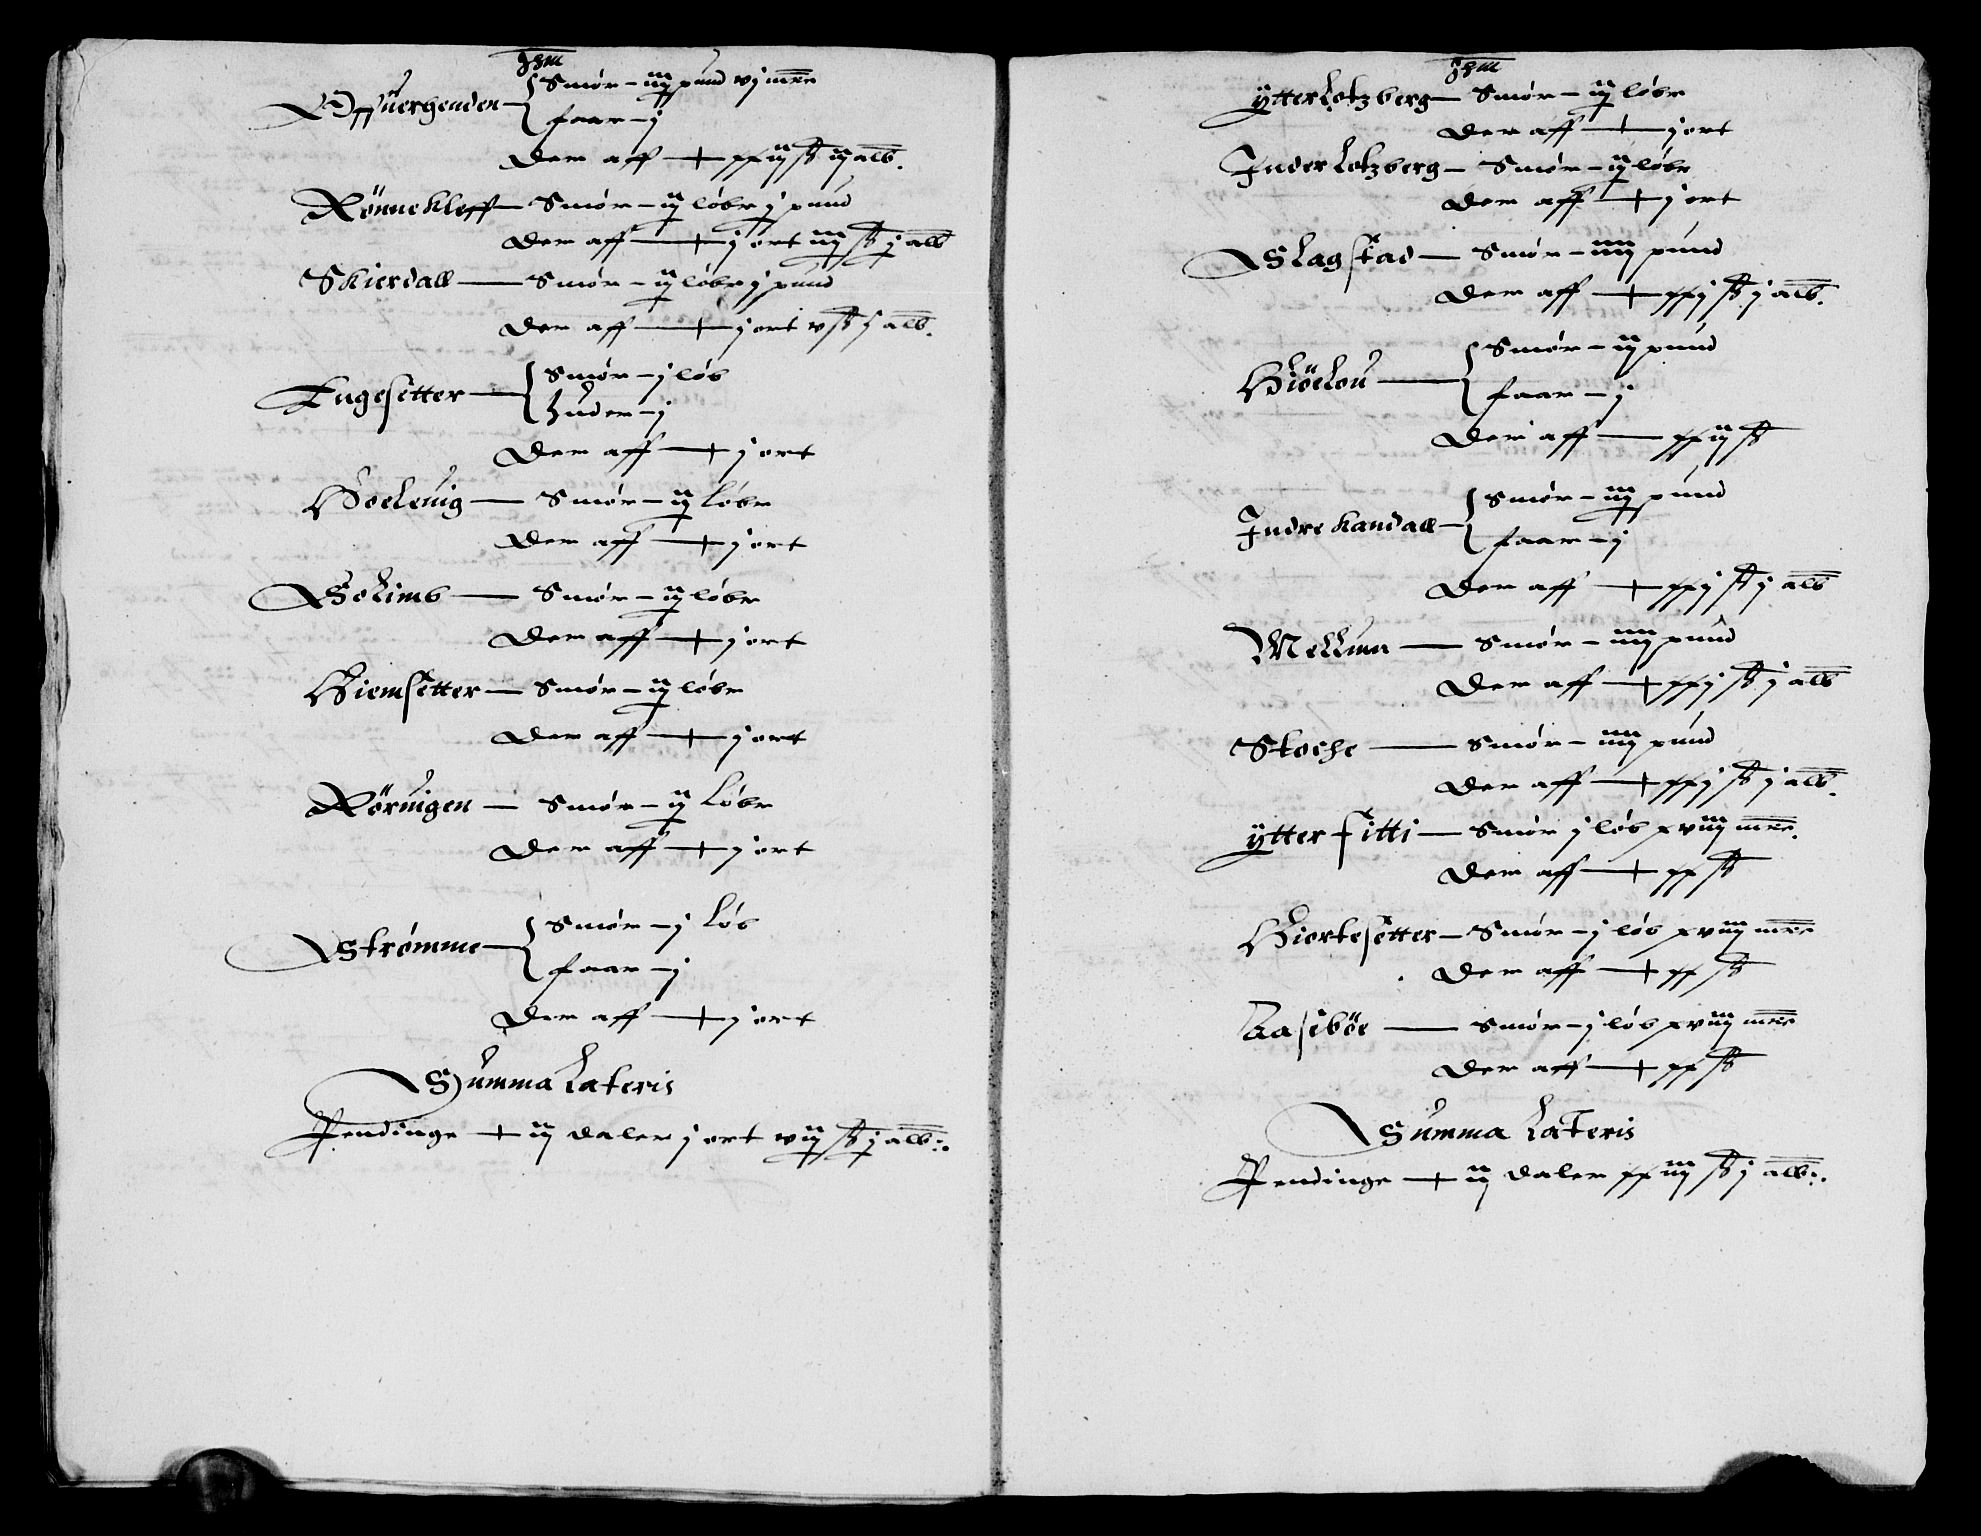 Offuergenden Smør - iiij pund vj mrc
faar - j
Der aff xxij ſß ij alb.
Rönnekleff Smør - ij løbr j pund
Der aff j ort iiij ſß j alb
Skierdall Smør - ij løbr j pund
Der aff j ort v ſß j alb.
Engesetter Smør - j løb
huder - j
Der aff j ort
Hoeleuig Smør - ij løbr
Der aff j ort
Solimb Smør - ij løbr
Der aff j ort
Hiemsetter Smør - ij løbr
Der aff j ort
Röruigen Smør - ij løbr
Der aff j ort
Strømme Smør - j løb
faar - j
Der aff j ort
Summa Lateris
Pendinge ij daler j ort vij ſß j alb
Ytter Lotzberg Smør - ij løbr
Der aff j ort
Inder Lotzberg Smør - ij løbr
Der aff j ort
Slagstad Smør - iiiij pund
Der aff xxj ſß j alb.
Hiöelou Smør - iij pund
faar - j
Der aff xxij ſß
Indre Kandall Smør - iiij pund
faar - j
Der aff xxj ſß j alb
Mellum Smør - iiiij pund
Der aff xxj ſß j alb
Stoche Smør - iiiij pund
Der aff xxj ſß j alb.
Ytter fitti Smør j løb xviij mrc.
Der aff xx ſß
Hiortesetter Smør - j løb xviij mrc
Der aff xx ſß
Aaseböe Smør - j løb xviij mrc
Der aff xx ſß
Summa Lateris
Pendinge ij daler xxiij ſß j alb